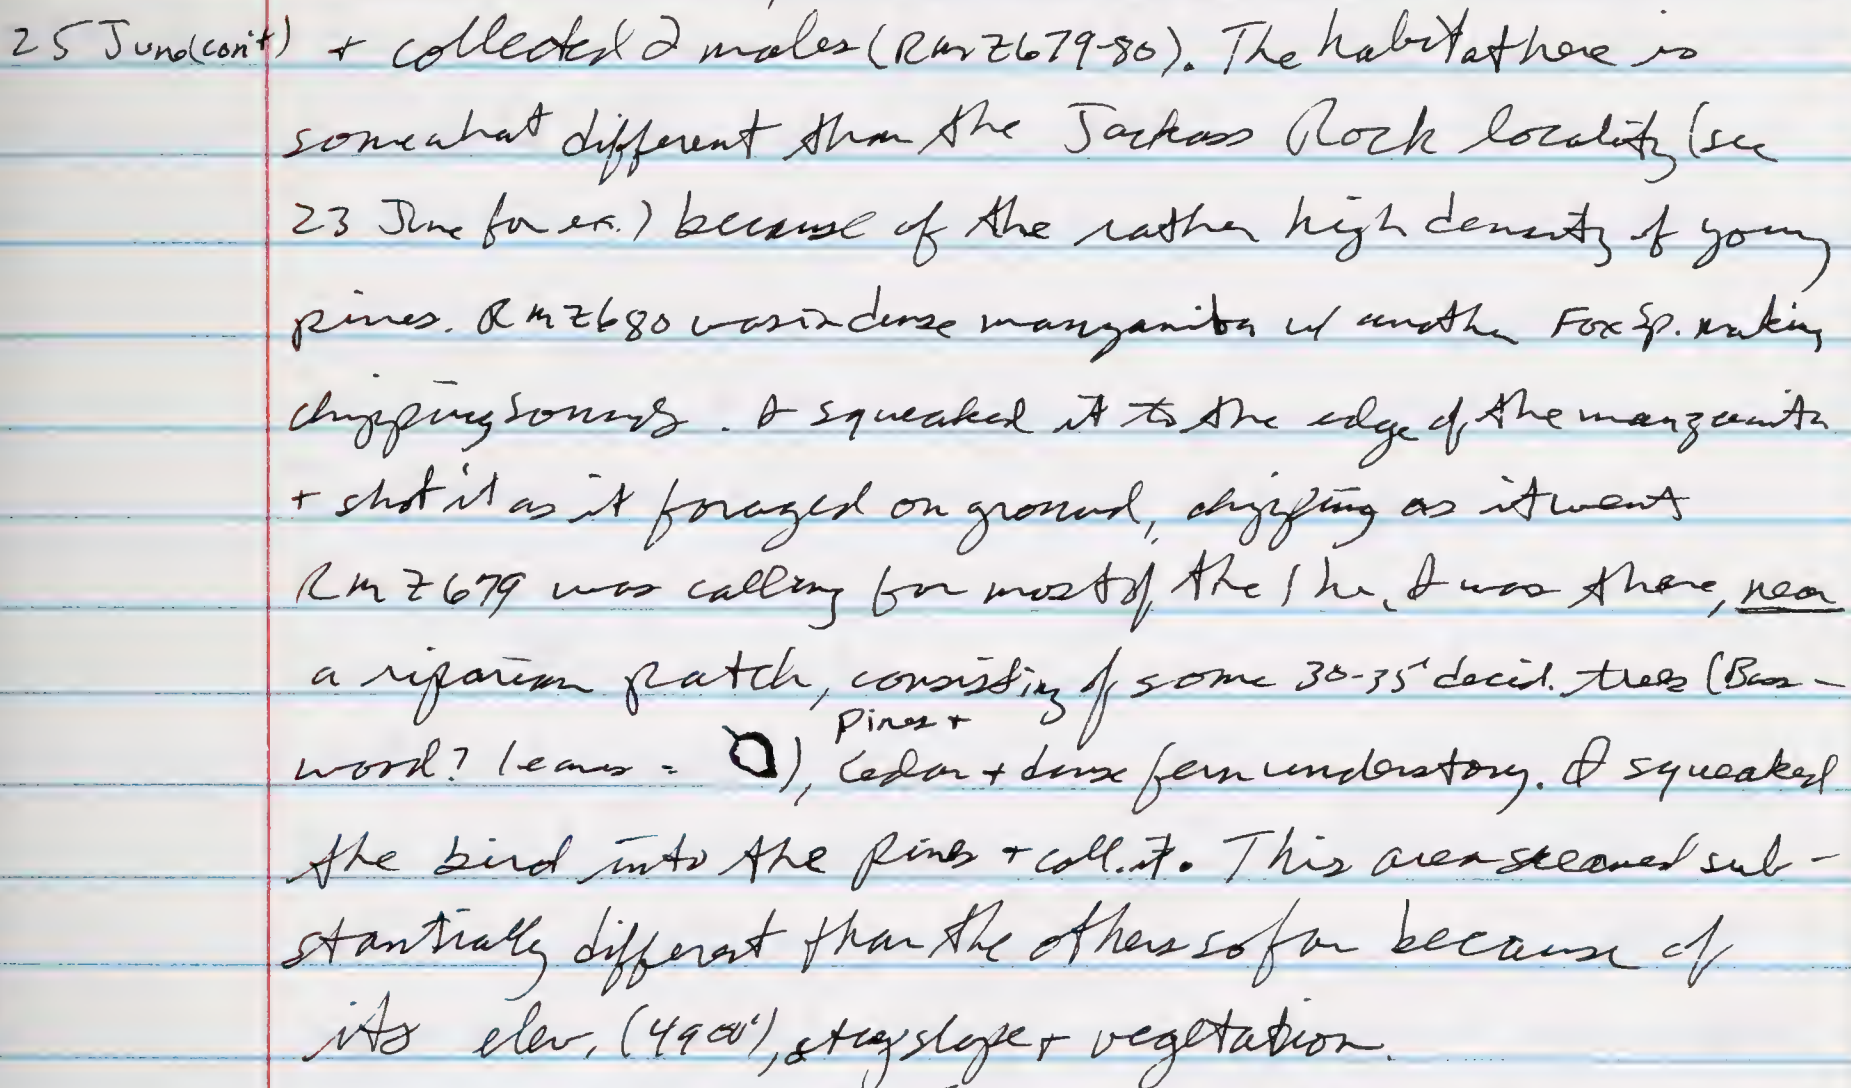 25 June (con't) + collected 2 males (RMZ679-80). The habitat here is
somewhat different than the Jackass Rock locality (see
23 June for ex.) because of the rather high density of young
pines. RMZ680 was in dense manzanita w/ another Fox Sp. making
chipping sounds. I squeaked it to the edge of the manzanita
+ shot it as it foraged on ground, chipping as it went
RMZ679 was calling for most of the 1 hr. I was there, near
a riparian patch, consisting of some 30-35' decid. trees (Bass-
wood? leaves = ), pines + Cedar + dense fern understory. I squeaked
the bird into the pines + coll. it. This area seemed sub-
stantially different than the others so far because of
its elev. (4900'), steep slope + vegetation.